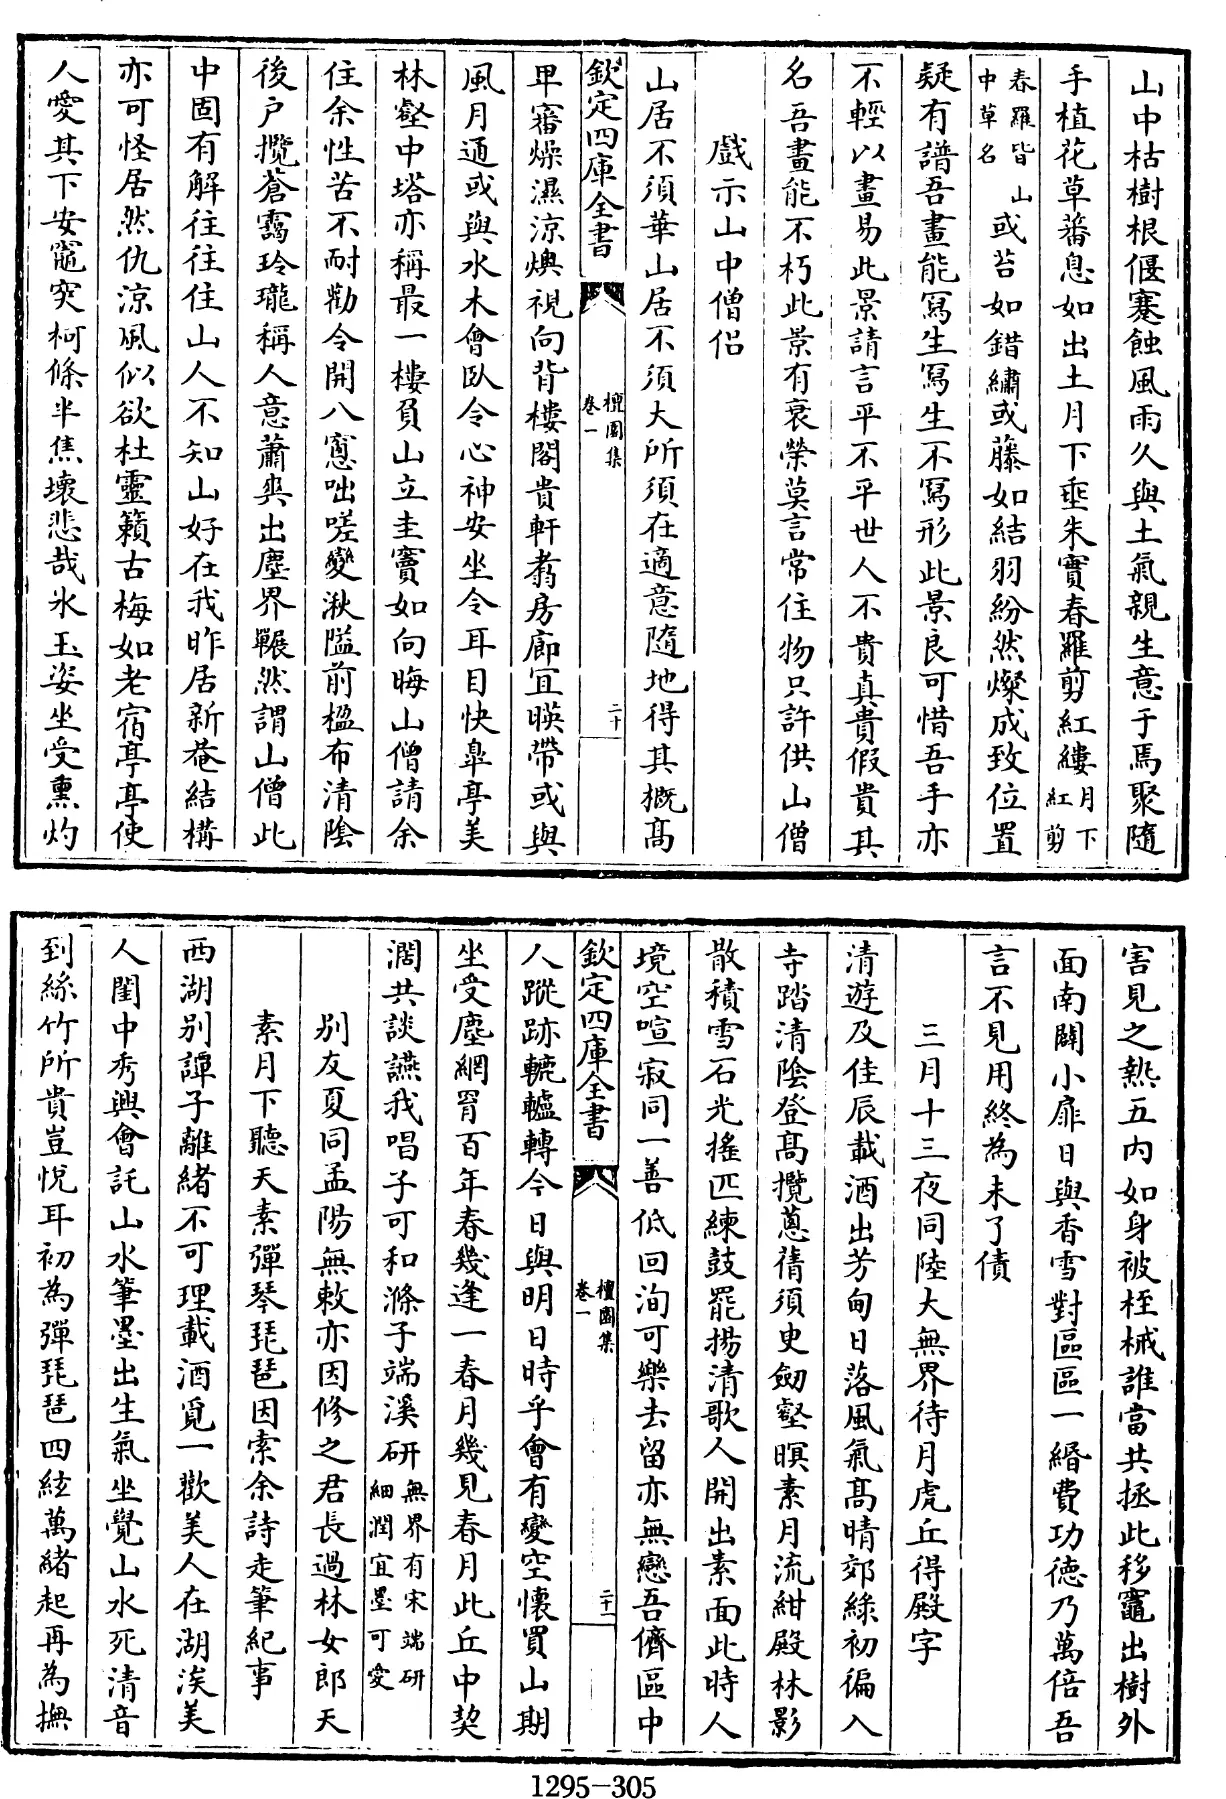 山中枯樹根偃蹇蝕風雨久與土氣親生意于焉聚隨
手植花草蕃息如出土月下垂朱實春羅剪紅縷月下紅剪
春羅皆山中草名或苔如錯繡或藤如結羽紛然燦成致位置
疑有譜吾畫能寫生寫生不寫形此景良可惜吾手亦
不輕以畫易此景請言平不平世人不貴真貴假貴其
名吾畫能不朽此景有衰榮莫言常住物只許供山僧
戲示山中僧侶
山居不須華山居不須大所須在適意隨地得其概高
欽定四庫全書
檀園集
卷一
二十
卑審燥濕涼燠視向背樓閣貴軒翥房廊宜暎帶或與
風月通或與水木會臥令心神安坐令耳目快臯亭美
林壑中塔亦稱最一樓負山立圭竇如向晦山僧請余
住余性苦不耐勸令開八窻咄嗟變湫隘前楹布清陰
後户攬蒼靄玲瓏稱人意蕭爽出塵界囅然謂山僧此
中固有解往往住山人不知山好在我昨居新菴結構
亦可怪居然仇涼風似欲杜靈籟古梅如老宿亭亭使
人愛其下安竈突柯條半焦壞悲哉氷玉姿坐受熏灼
害見之熱五内如身被桎械誰當共拯此移竈出樹外
面南闢小扉日與香雪對區區一緡費功德乃萬倍吾
言不見用終為未了債
三月十三夜同陸大無界待月虎丘得殿字
清遊及佳辰載酒出芳甸日落風氣高晴郊綠初徧入
寺踏清陰登高攬蔥蒨須史劒壑暝素月流紺殿林影
散積雪石光搖匹練鼓罷揚清歌人開出素面此時人
境空喧寂同一善低回洵可樂去留亦無戀吾儕區中
欽定四庫全書
檀園集
卷一
二十一
人蹤跡轆轤轉今日與明日時乎會有變空懷買山期
坐受塵網罥百年春幾逢一春月幾見春月此丘中契
濶共談讌我唱子可和滌子端溪研無界有宋端研細潤宜墨可愛
别友夏同孟陽無敕亦因修之君長過林女郎天
素月下聽天素彈琴琵琶因索余詩走筆紀事
西湖别譚子離緒不可理載酒覓一歡美人在湖涘美
人閨中秀興會託山水筆墨出生氣坐覺山水死清音
到絲竹所貴豈悦耳初為彈琵琶四絃萬緒起再為撫
1295-305